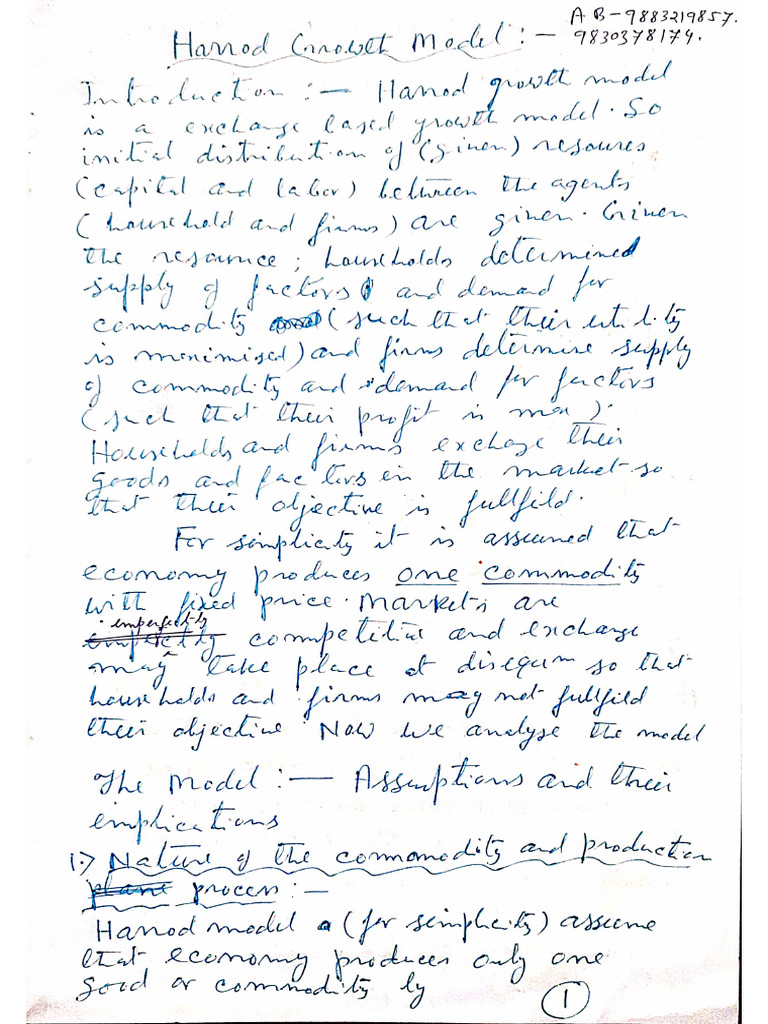 A.B-9883219857.
Harrod Growth Model :- 9830378174.
Introduction :- Harrod growth model
is a exchange based growth model. So
initial distribution of (given) resources
(capital and labor) between the agents
(household and firms) are given. Given
the resource; households determined
supply of factors and demand for
commodity (such that their utility
is minimised) and firms determine supply
of commodity and demand for factors
(such that their profit is max).
Households and firms exchage their
goods and factors in the market so
that their objective is fullfild.
For simplicity it is assumed that
economy produces one commodity
with fixed price. Markets are
imperfectly competitive and exchange
may take place at disequm so that
households and firms may not fullfild
their objective Now we analyse the model
The Model :- Assumptions and their
implications
1.) Nature of the commomodity and production
process :-
Harrod model (for simplicity) assume
that economy produces only one
good or commodity by
1